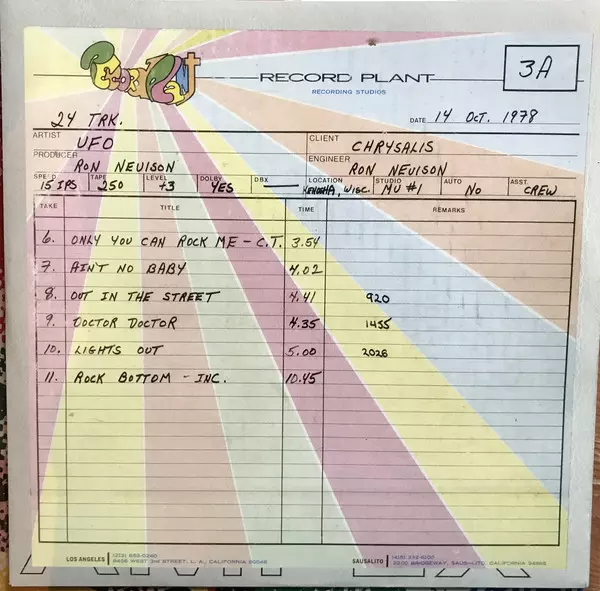 Record Plant
RECORD PLANT
RECORDING STUDIOS
3A
24 TRK.
DATE 14 OCT. 1978
ARTIST UFO
CLIENT CHRYSALIS
PRODUCER RON NEVISON
ENGINEER RON NEVISON
SPEED 15 IPS TAPE 250 LEVEL +3 DOLBY YES DBX — LOCATION KENOSHA, WISC. STUDIO MU #1 AUTO NO ASST. CREW
TAKE TITLE TIME REMARKS
6. ONLY YOU CAN ROCK ME - C.T. 3.54
7. AIN'T NO BABY 4.02
8. OUT IN THE STREET 4.41 920
9. DOCTOR DOCTOR 4.35 1435
10. LIGHTS OUT 5.00 2026
11. ROCK BOTTOM - INC. 10.45
LOS ANGELES
8456 WEST 3rd STREET, L. A., CALIFORNIA 90048
SAUSALITO
2200 BRIDGEWAY, SAUSALITO, CALIFORNIA 94965